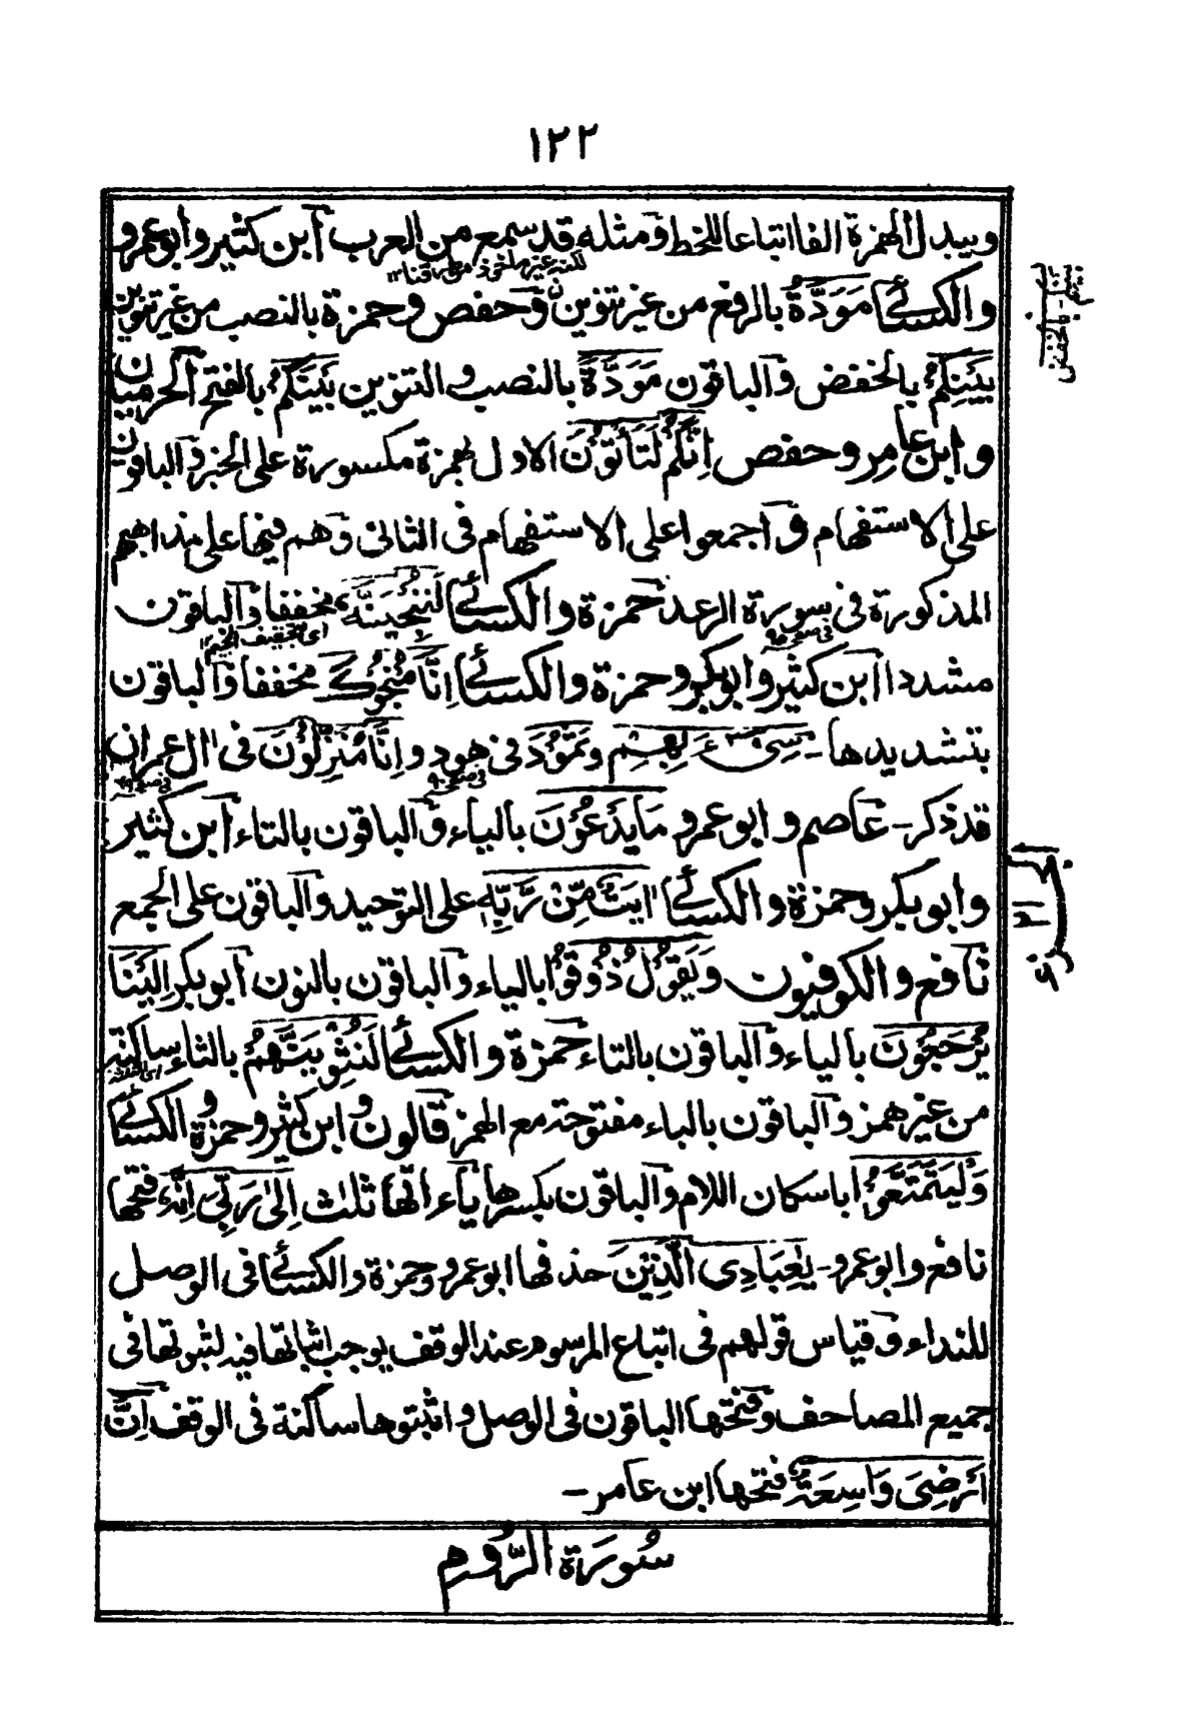 ١٢٢
ويبدل الهمزة الفا اتباعا للخط ومثله قد سمع من العرب ابن كثير وابو عمرو
لكنه غير ماخوذ من طرقنا ١٢
والكسائي مَوَدَّةُ بالرفع من غير تنوين وحفص وحمزة بالنصب من غير تنوين
بَيْنِكُمْ بالخفض والباقون مَوَدَّةً بالنصب والتنوين بَيْنَكُمْ بالفتح الحرميان
وابن عامر وحفص اِنَّكُمْ لَتَأْتُوْنَ الاول بهمزة مكسورة على الخبر والباقون
على الاستفهام واجمعوا على الاستفهام فى الثانى وهم فيها على مذاهبهم
المذكورة فى سورة الرعد حمزة والكسائي لَنُنْجِيَنَّهٗ مخففا والباقون
اى بتخفيف الجيم ١٢
مشددا ابن كثير وابو بكر وحمزة والكسائي اِنَّا مُنْجُوْكَ مخففا والباقون
بتشديدها - سِىْٓءَ بِهِمْ وثَمُوْدَ فى هود و اِنَّا مُنْزِلُوْنَ فى اٰل عمران
قد ذكر - عاصم وابو عمرو مَا يَدْعُوْنَ بالياء والباقون بالتاء ابن كثير
وابو بكر وحمزة والكسائي اٰيٰتٌ مِّنْ رَّبِّهٖ على التوحيد والباقون على الجمع
نافع والكوفيون وَيَقُوْلُ ذُوْقُوْا بالياء والباقون بالنون ابو بكر اِلَيْنَا
يُرْجَعُوْنَ بالياء والباقون بالتاء حمزة والكسائي لَنُثْوِيَنَّهُمْ بالثاء ساكنة
من غير همز والباقون بالباء مفتوحة مع الهمز قالون وابن كثير وحمزة والكسائي
وَلْيَتَمَتَّعُوْا باسكان اللام والباقون بكسرها ياء اتها ثلث اِلٰى رَبِّىْ اِنَّهٗ فتحها
نافع وابو عمرو - يٰعِبَادِىَ الَّذِيْنَ حذفها ابو عمرو وحمزة والكسائي فى الوصل
للنداء وقياس قولهم فى اتباع المرسوم عند الوقف يوجب اثباتها فيه لثبوتها فى
جميع المصاحف وفتحها الباقون فى الوصل واثبتوها ساكنة فى الوقف اِنَّ
اَرْضِىْ وَاسِعَةٌ فتحها ابن عامر -
سُورَة الرُّومِ